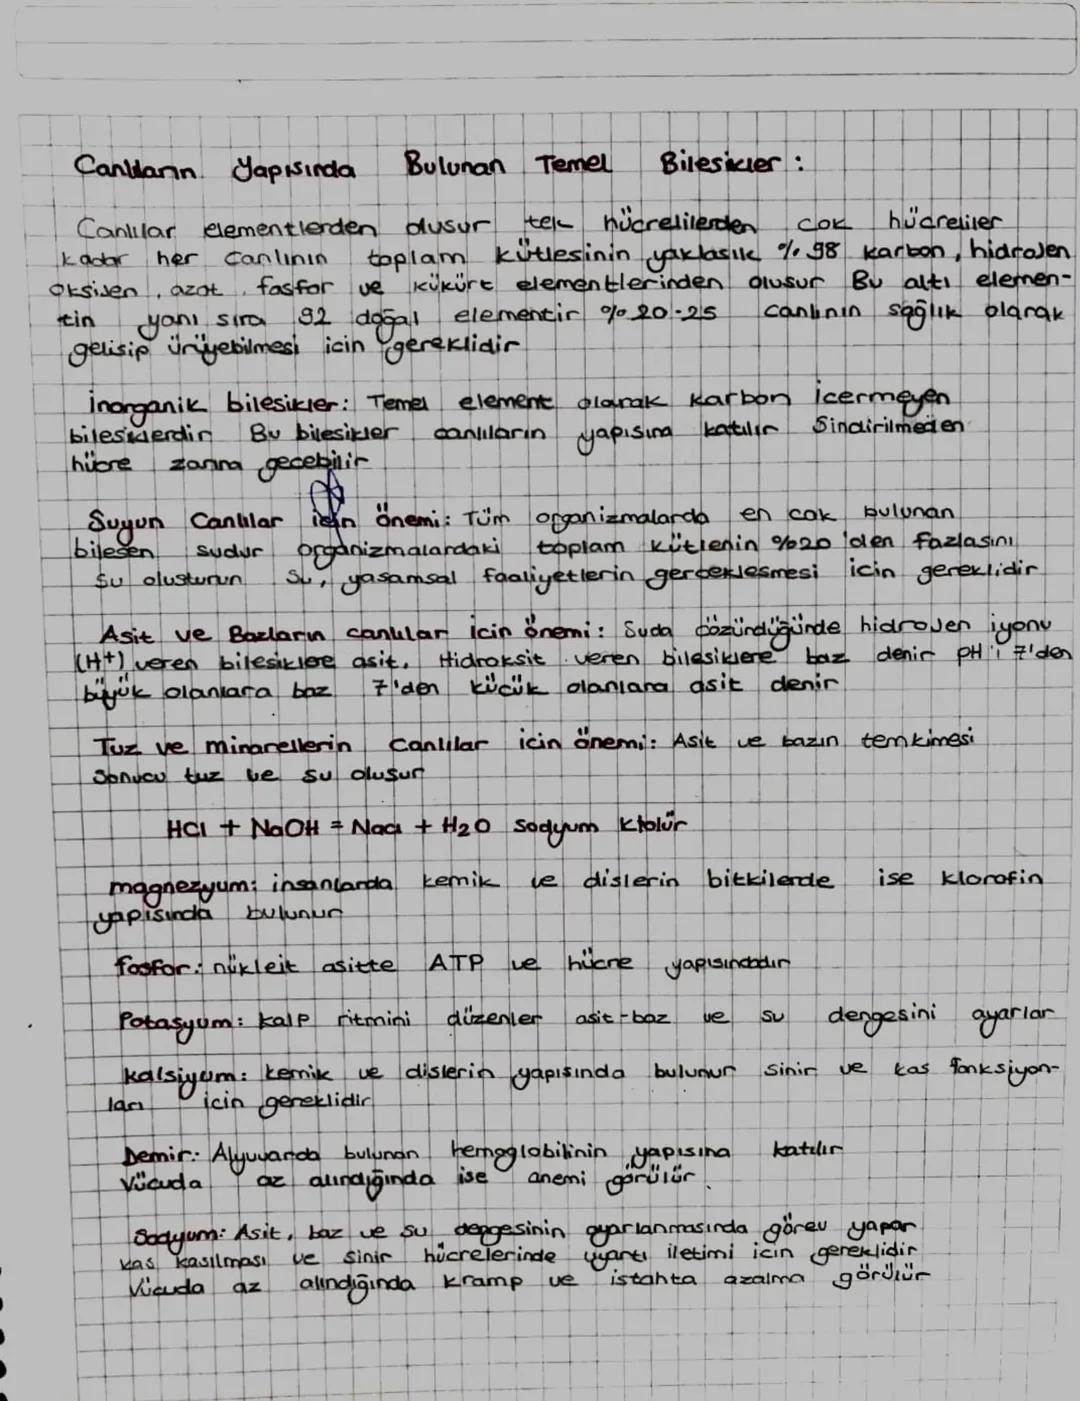 Canlıların Yapısında Bulunan Temel Bilesikler :
Canlılar elementlerden olusur tek hücrelilerden cok hücreliler
kadar her canlının toplam kütlesinin yaklasık %98 karbon, hidrojen
oksijen, azot, fosfor ve kükürt elementlerinden olusur Bu altı elemen-
tin yanı sıra 92 doğal elementir %20-25 canlının sağlık olarak
gelisip ürüyebilmesi icin gereklidir
İnorganik bilesikler: Temel element olarak karbon icermeyen
bilesiklerdir Bu bilesikler canlıların yapısına katılır Sindirilmeden
hücre zarına gecebilir
Suyun Canlılar icin önemi: Tüm organizmalarda en cok bulunan
bilesen sudur organizmalardaki toplam kütlenin %20'den fazlasını
su olusturun Su, yasamsal faaliyetlerin gerceklesmesi icin gereklidir
Asit ve Bazların canlılar icin önemi: Suda cözündüğünde hidrojen iyonu
(H+) veren bilesiklere asit, Hidroksit veren bilesiklere baz denir PH'ı 7'den
büyük olanlara baz 7'den kücük olanlara asit denir
Tuz ve minarellerin Canlılar icin önemi: Asit ve bazın temkimesi
Sonucu tuz ve su olusur
HCl + NaOH = Nacl + H2O Sodyum Klolür
magnezyum: insanlarda kemik ve dislerin bitkilerde ise klorofin
yapısında bulunur
fosfor: nükleit asitte ATP ve hücre yapısındadır
Potasyum: kalp ritmini düzenler asit-baz ve su dengesini ayarlar
kalsiyum: kemik ve dislerin yapısında bulunur sinir ve kas fonksiyon-
ları icin gereklidir
Demir: Alyuvarda bulunan hemoglobilinin yapısına katılır
Vücuda az alındığında ise anemi görülür.
Sodyum: Asit, baz ve su dengesinin ayarlanmasında görev yapar
kas kasılması ve sinir hücrelerinde uyartı iletimi icin gereklidir
Vücuda az alındığında kramp ve istahta azalma görülür